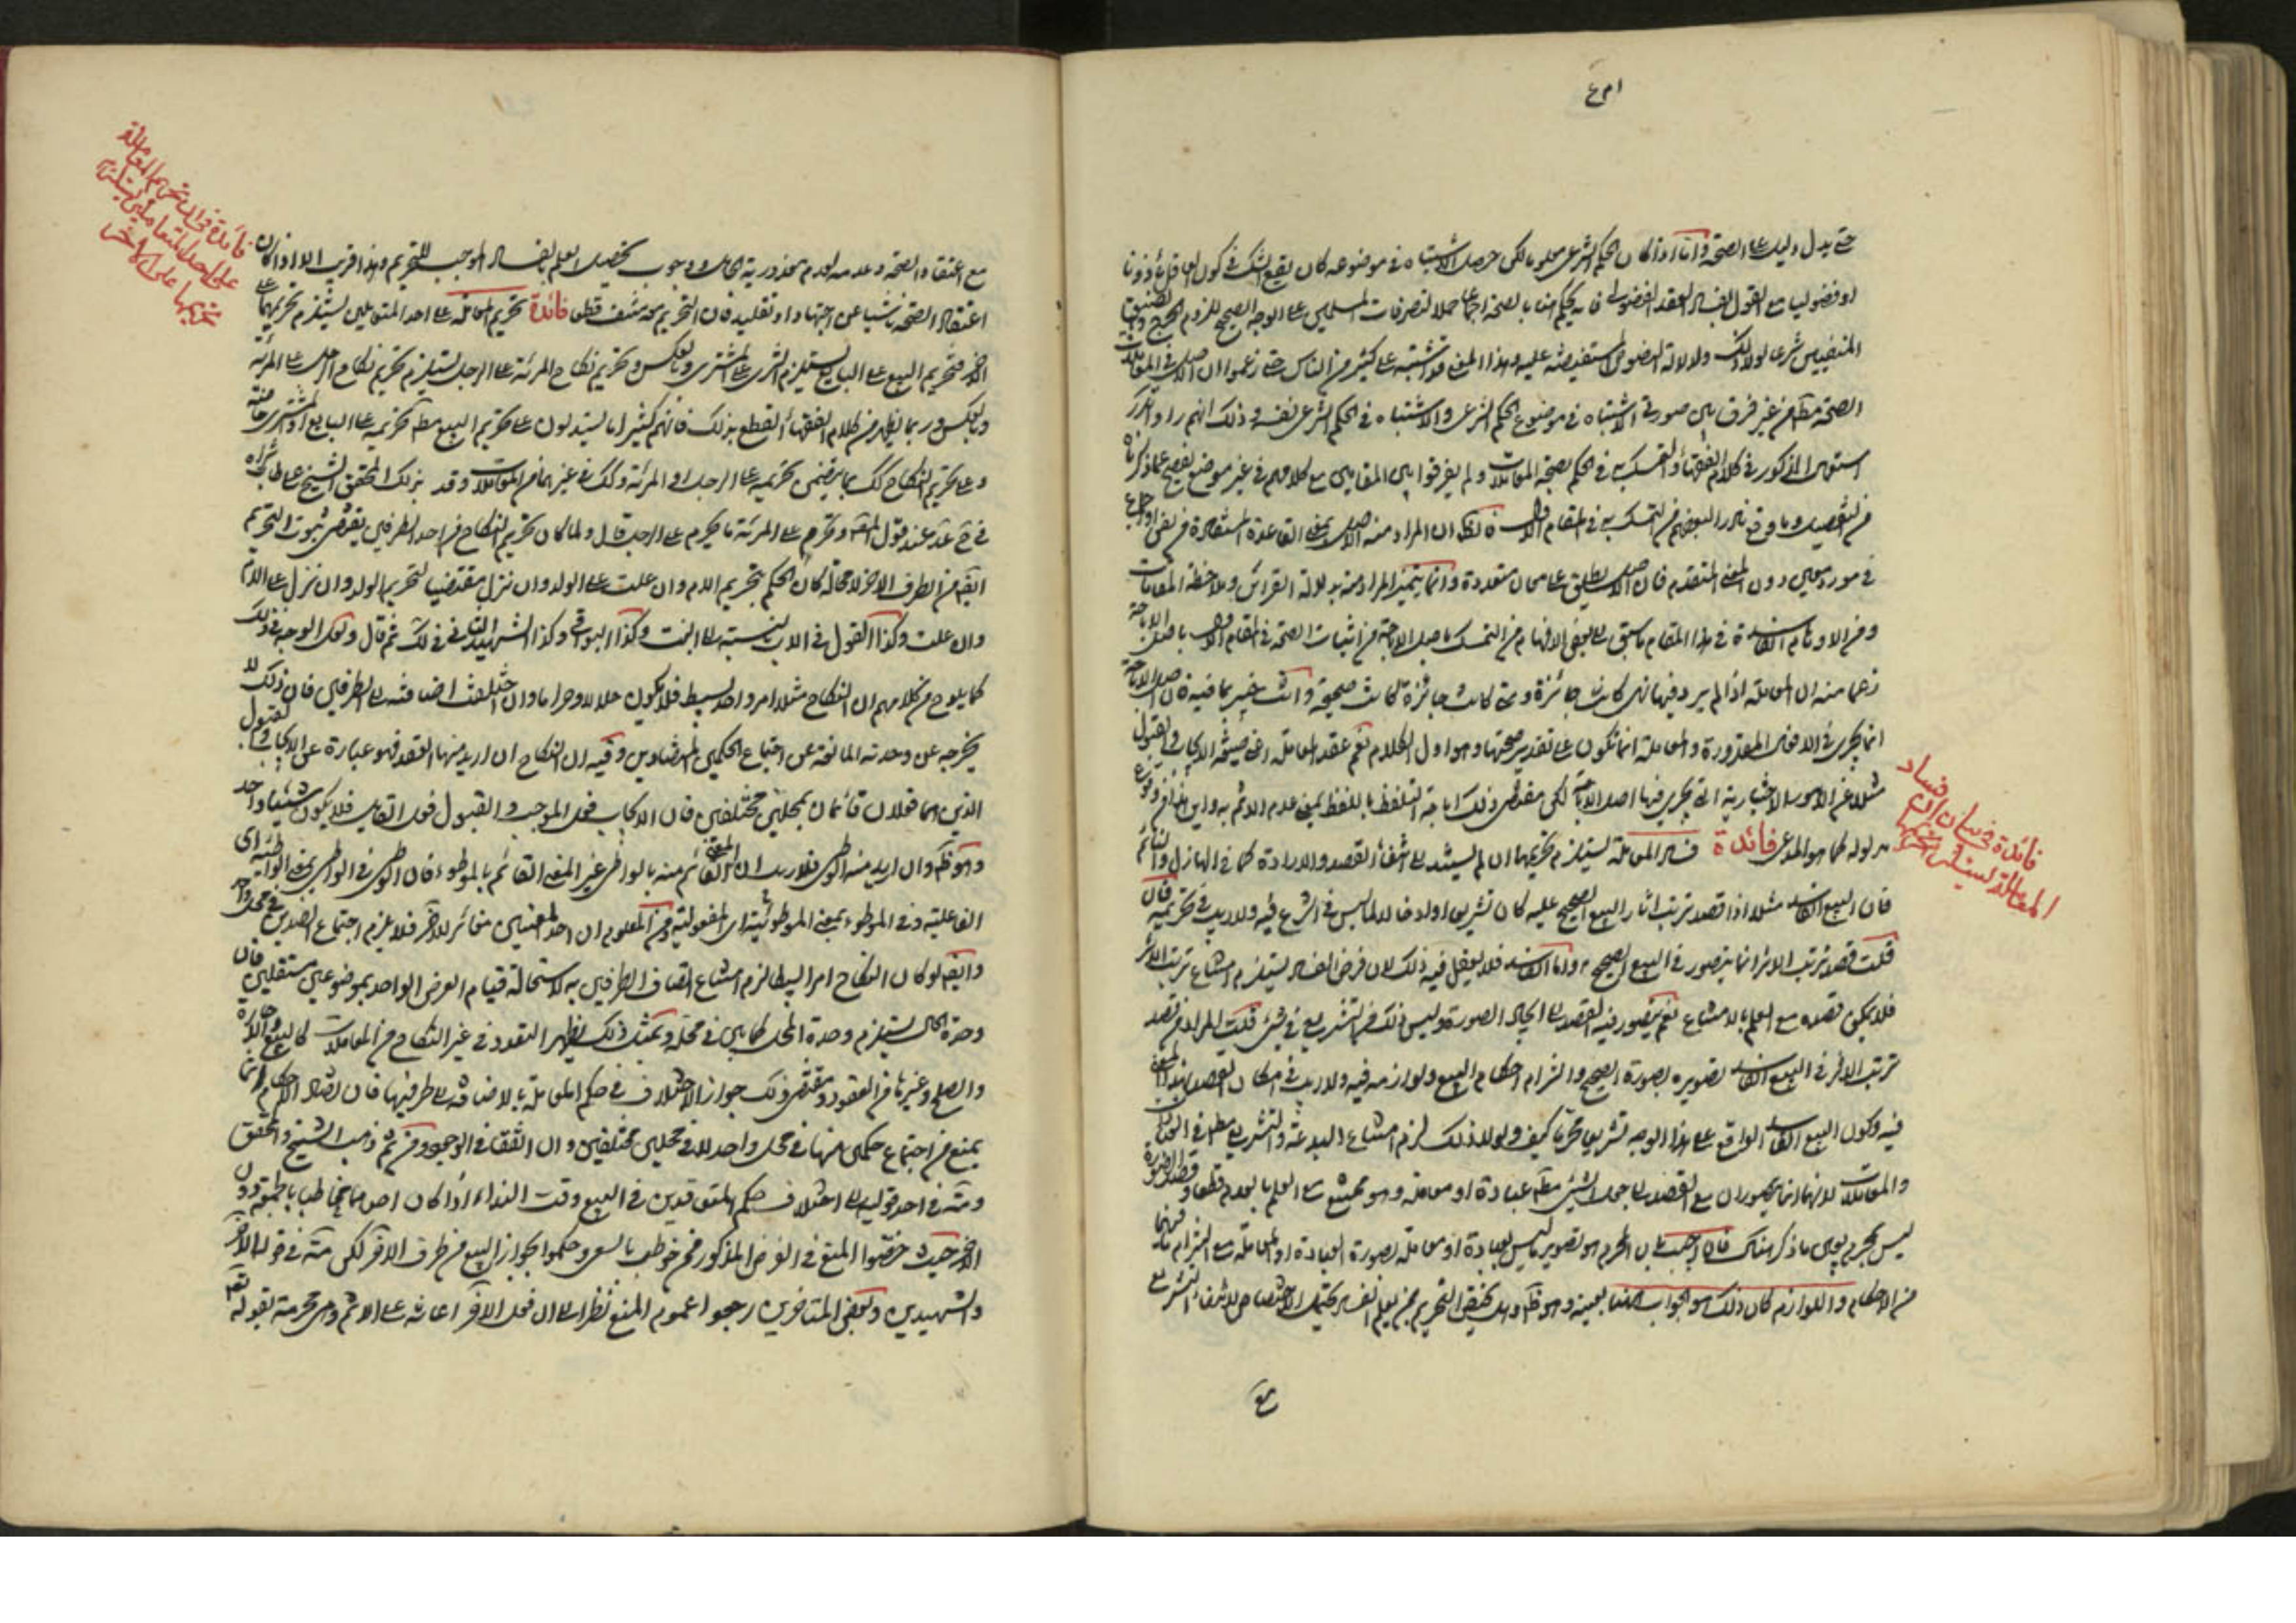 حتى يدل دليل على الصحة واما اذا كان الحكم الشرعي معلوما لكن حصل الاشتباه في موضوعه كان يقع الشك في كون العاقل مأذونا
او فضوليا مع القول بفساد العقد الفضولي فانه يحكم هنا بالصحة اجماعا حملا لتصرفات المسلمين على الوجه الصحيح للزوم الحرج والضيق
المنفيين شرعا لولا ذلك ولدلالة النصوص المستفيضة عليه وهذا المعنى قد اشتبه على كثير من الناس حتى زعموا ان الاصل في المعاملات
الصحة مطلقا من غير فرق بين صورتي الاشتباه في موضوع الحكم الشرعي والاشتباه في الحكم الشرعي نفسه وذلك انهم راوا تكرر
الاصل المذكور في كلام الفقهاء والتمسك به في الحكم بصحة المعاملات ولم يفرقوا بين المقامين مع كلامهم في غير موضع يفصح عما ذكرناه
من التفصيل وما وقع نادرا لبعضهم من التمسك به في المقام الاول فالظ ان المراد منه الاصل بمعنى القاعدة المستفادة من نص او اجماع
في مورد معين دون المعنى المتقدم فان الاصل يطلق على معان متعددة وانما يتميز المراد منه بدلالة القرائن وملاحظة المقامات
ومن الاوهام الفاسدة في هذا المقام ما سبق الى بعض الافهام من التمسك باصل الاباحة في اثبات الصحة في المقام الاول باصل الاباحة
زعما منه ان المعاملة اذا لم يرد فيها نهي كانت جائزة ومتى كانت جائزة كانت صحيحة وانت خبير بما فيه فان اصل الاباحة
انما يجري في الافعال المقدورة والمعاملة انما تكون على تقدير صحتها وهو اول الكلام نعم عقد المعاملة اعني صيغة الايجاب والقبول
مثلا من الامور الاختيارية التي يجري فيها اصل الاباحة لكن مقتضى ذلك اباحة التلفظ باللفظ بمعنى عدم الاثم به واين هذا من وقوع
مدلوله كما هو المدعى فائدة فساد المعاملة يستلزم تحريمها ان لم يستند الى انتفاء القصد والارادة كما في الهازل والنائم
فان البيع الفاسد مثلا اذا قصد ترتب اثار البيع الصحيح عليه كان تشريعا وادخالا لما ليس في الشرع فيه ولا ريب في تحريمه فان
قلت قصد ترتب الاثر انما يتصور في البيع الصحيح واما الفاسد فلا يعقل فيه ذلك لان فرض الفساد يستلزم امتناع ترتب الاثر
فلا يمكن قصده مع العلم بالامتناع نعم يتصور فيه القصد الى ايجاد الصورة وليس ذلك من التشريع في شيء قلت المراد من قصد
ترتب الاثر في البيع الفاسد تصويره بصورة الصحيح والتزام احكام البيع ولوازمه فيه ولا ريب في امكان القصد بهذا المعنى
فيه وكون البيع الفاسد الواقع على هذا الوجه تشريعا محرما كيف ولولا ذلك لزم امتناع البدعة والتشريع مطلقا في العبادات
والمعاملات لانهما انما يتصوران مع القصد الى جعل الشيء مطلقا عبادة او معاملة وهو ممتنع مع العلم بالعدم قطعا وقصد الصورة
ليس بمحرم بعين ما ذكر هناك فان اجيب بان المحرم هو تصوير ما ليس بعبادة او معاملة بصورة العبادة او المعاملة مع التزام ما فيهما
من الاحكام واللوازم كان ذلك هو الجواب هنا بعينه وهو ظ وهل يختص التحريم بمن يعلم الفساد يحتمل الاختصاص لانتفاء التشريع
فائدة في بيان ان فساد
المعاملة يستلزم تحريمها
مع
مع اعتقاد الصحة وعدمه لعدم معذورية الجاهل ووجوب تحصيل العلم بفساد الموجب للتحريم وهذا قريب الا اذا كان
اعتقاد الصحة ناشيا عن اجتهاد او تقليد فان التحريم معه منتف قطعا فائدة تحريم المعاملة على احد المتعاملين يستلزم تحريمها على
الاخر فتحريم البيع على البايع يستلزم الشرى على المشتري وبالعكس وتحريم نكاح المرئة على الرجل يستلزم تحريم نكاح الرجل على المرئة
وبالعكس وربما يظهر من كلام الفقهاء القطع بذلك فانهم كثيرا ما يستدلون على تحريم البيع مطلقا بتحريمه على البايع او المشتري خاصة
وعلى تحريم النكاح كك بما يتضمن تحريمه على الرجل او المرئة وكك في غيرهما من المعاملات وقد بذلك المحقق الشيخ على طاب ثراه
في عند قول المصنف ويحرم على المرئة ما يحرم على الرجل قال ولما كان تحريم النكاح من احد الطرفين يقتضي ثبوت التحريم
ايضا من الطرف الاخر لا محالة كان الحكم بتحريم الام وان علت على الولد وان نزل مقتضيا لتحريم الولد وان نزل على الام
وان علت وكذا القول في الاب بالنسبة الى البنت وكذا البواقي وكذا الشهيد الثاني في لك ثم قال ولعل الوجه في ذلك
كما يلوح من كلامهم ان النكاح مثلا امر واحد بسيط فلا يكون حلالا وحراما وان اختلفت اضافته الى الطرفين فان ذلك لا
يخرجه عن وحدته المانعة عن اجتماع الحكمين المتضادين وفيه ان النكاح ان اريد منها العقد فهو عبارة عن الايجاب والقبول
الذين هما فعلان قائمان بمحلين مختلفين فان الايجاب فعل الموجب والقبول فعل القابل فلا يكون شيئا واحدا
وهو ظ وان اريد منه الوطي فلا ريب ان المعنى القائم منه بالواطي غير المعنى القائم بالموطوء فان الوطي في الواطي بمعنى الواطئية اي
الفاعلية وفي الموطوء بمعنى الموطوئية اي المفعولية ومن المعلوم ان احد المعنيين مغائر للاخر فلا يلزم اجتماع الضدين في محل واحد
وايضا لو كان النكاح امرا بسيطا لزم امتناع اتصاف الطرفين به لاستحالة قيام العرض الواحد بموضوعين مستقلين فان
وحدة الحال يستلزم وحدة المحل كما بين في محله وبمثل ذلك يظهر التعدد في غير النكاح من المعاملات كالبيع والاجارة
والصلح وغيرها من العقود ومقتضى ذلك جواز الاختلاف في حكم المعاملة بالاضافة الى طرفيها فان تضاد الاحكام انما
يمنع من اجتماع حكمين منها في محل واحد لا في محلين مختلفين وان اتفقا في الوجود ومن ثم ذهب الشيخ والمحقق
ومة في احد قوليه الى اختلاف حكم المتعاقدين في البيع وقت النداء اذا كان احدهما مخاطبا بالجمعة دون
الاخر حيث خصوا المنع في الفرض المذكور بمن خوطب بالسعي وحكموا بجواز البيع من طرف الاخر لكن مة في قوله الاخر
والشهيدين وبعض المتاخرين رجحوا عموم المنع نظرا الى ان فعل الاخر اعانة على الاثم وهي محرمة بقوله تعم
فائدة في ان تحريم المعاملة
على احد المتعاملين يستلزم
تحريمها على الاخر